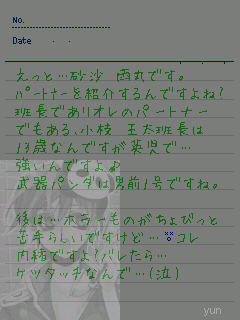 No.
Date . .
えっと…砂沙 西丸です。
パートナーを紹介するんですよね?
班長でありオレのパートナー
でもある、小枝 王太班長は
13歳なんですが英児で…
強いんですよ♪
武器パンダは男前1号ですね。
後は…ホラーものがちょびっと
苦手らしいですけど…コレ
内緒ですよ?バレたら…
ケツタッチなんで…(泣)
yun